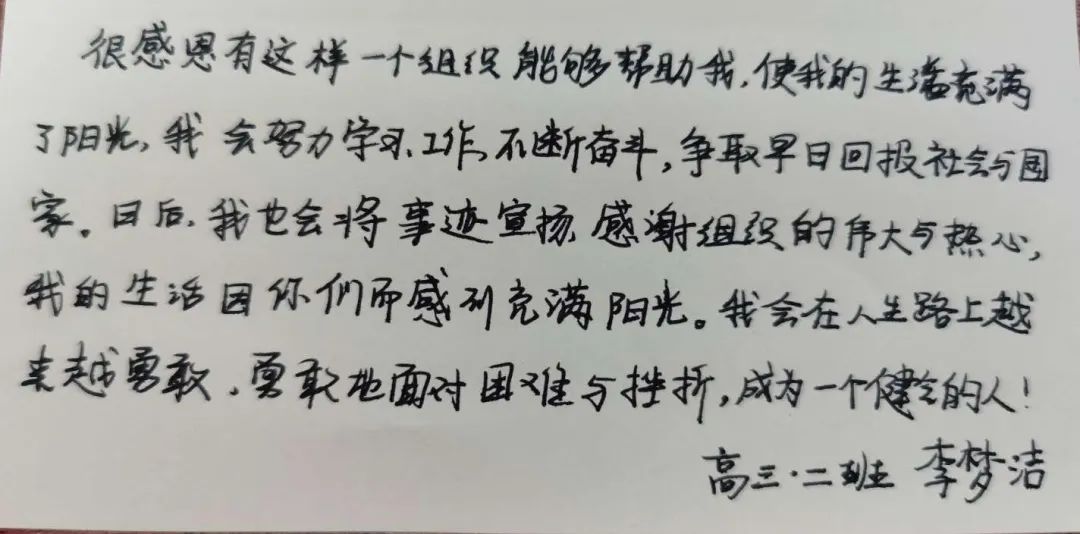 很感恩有这样一个组织能够帮助我,使我的生活充满
了阳光,我会努力学习、工作,不断奋斗,争取早日回报社会与国
家。日后,我也会将事迹宣扬,感谢组织的伟大与热心,
我的生活因你们而感到充满阳光。我会在人生路上越
来越勇敢,勇敢地面对困难与挫折,成为一个健全的人!
高三·二班 李梦洁